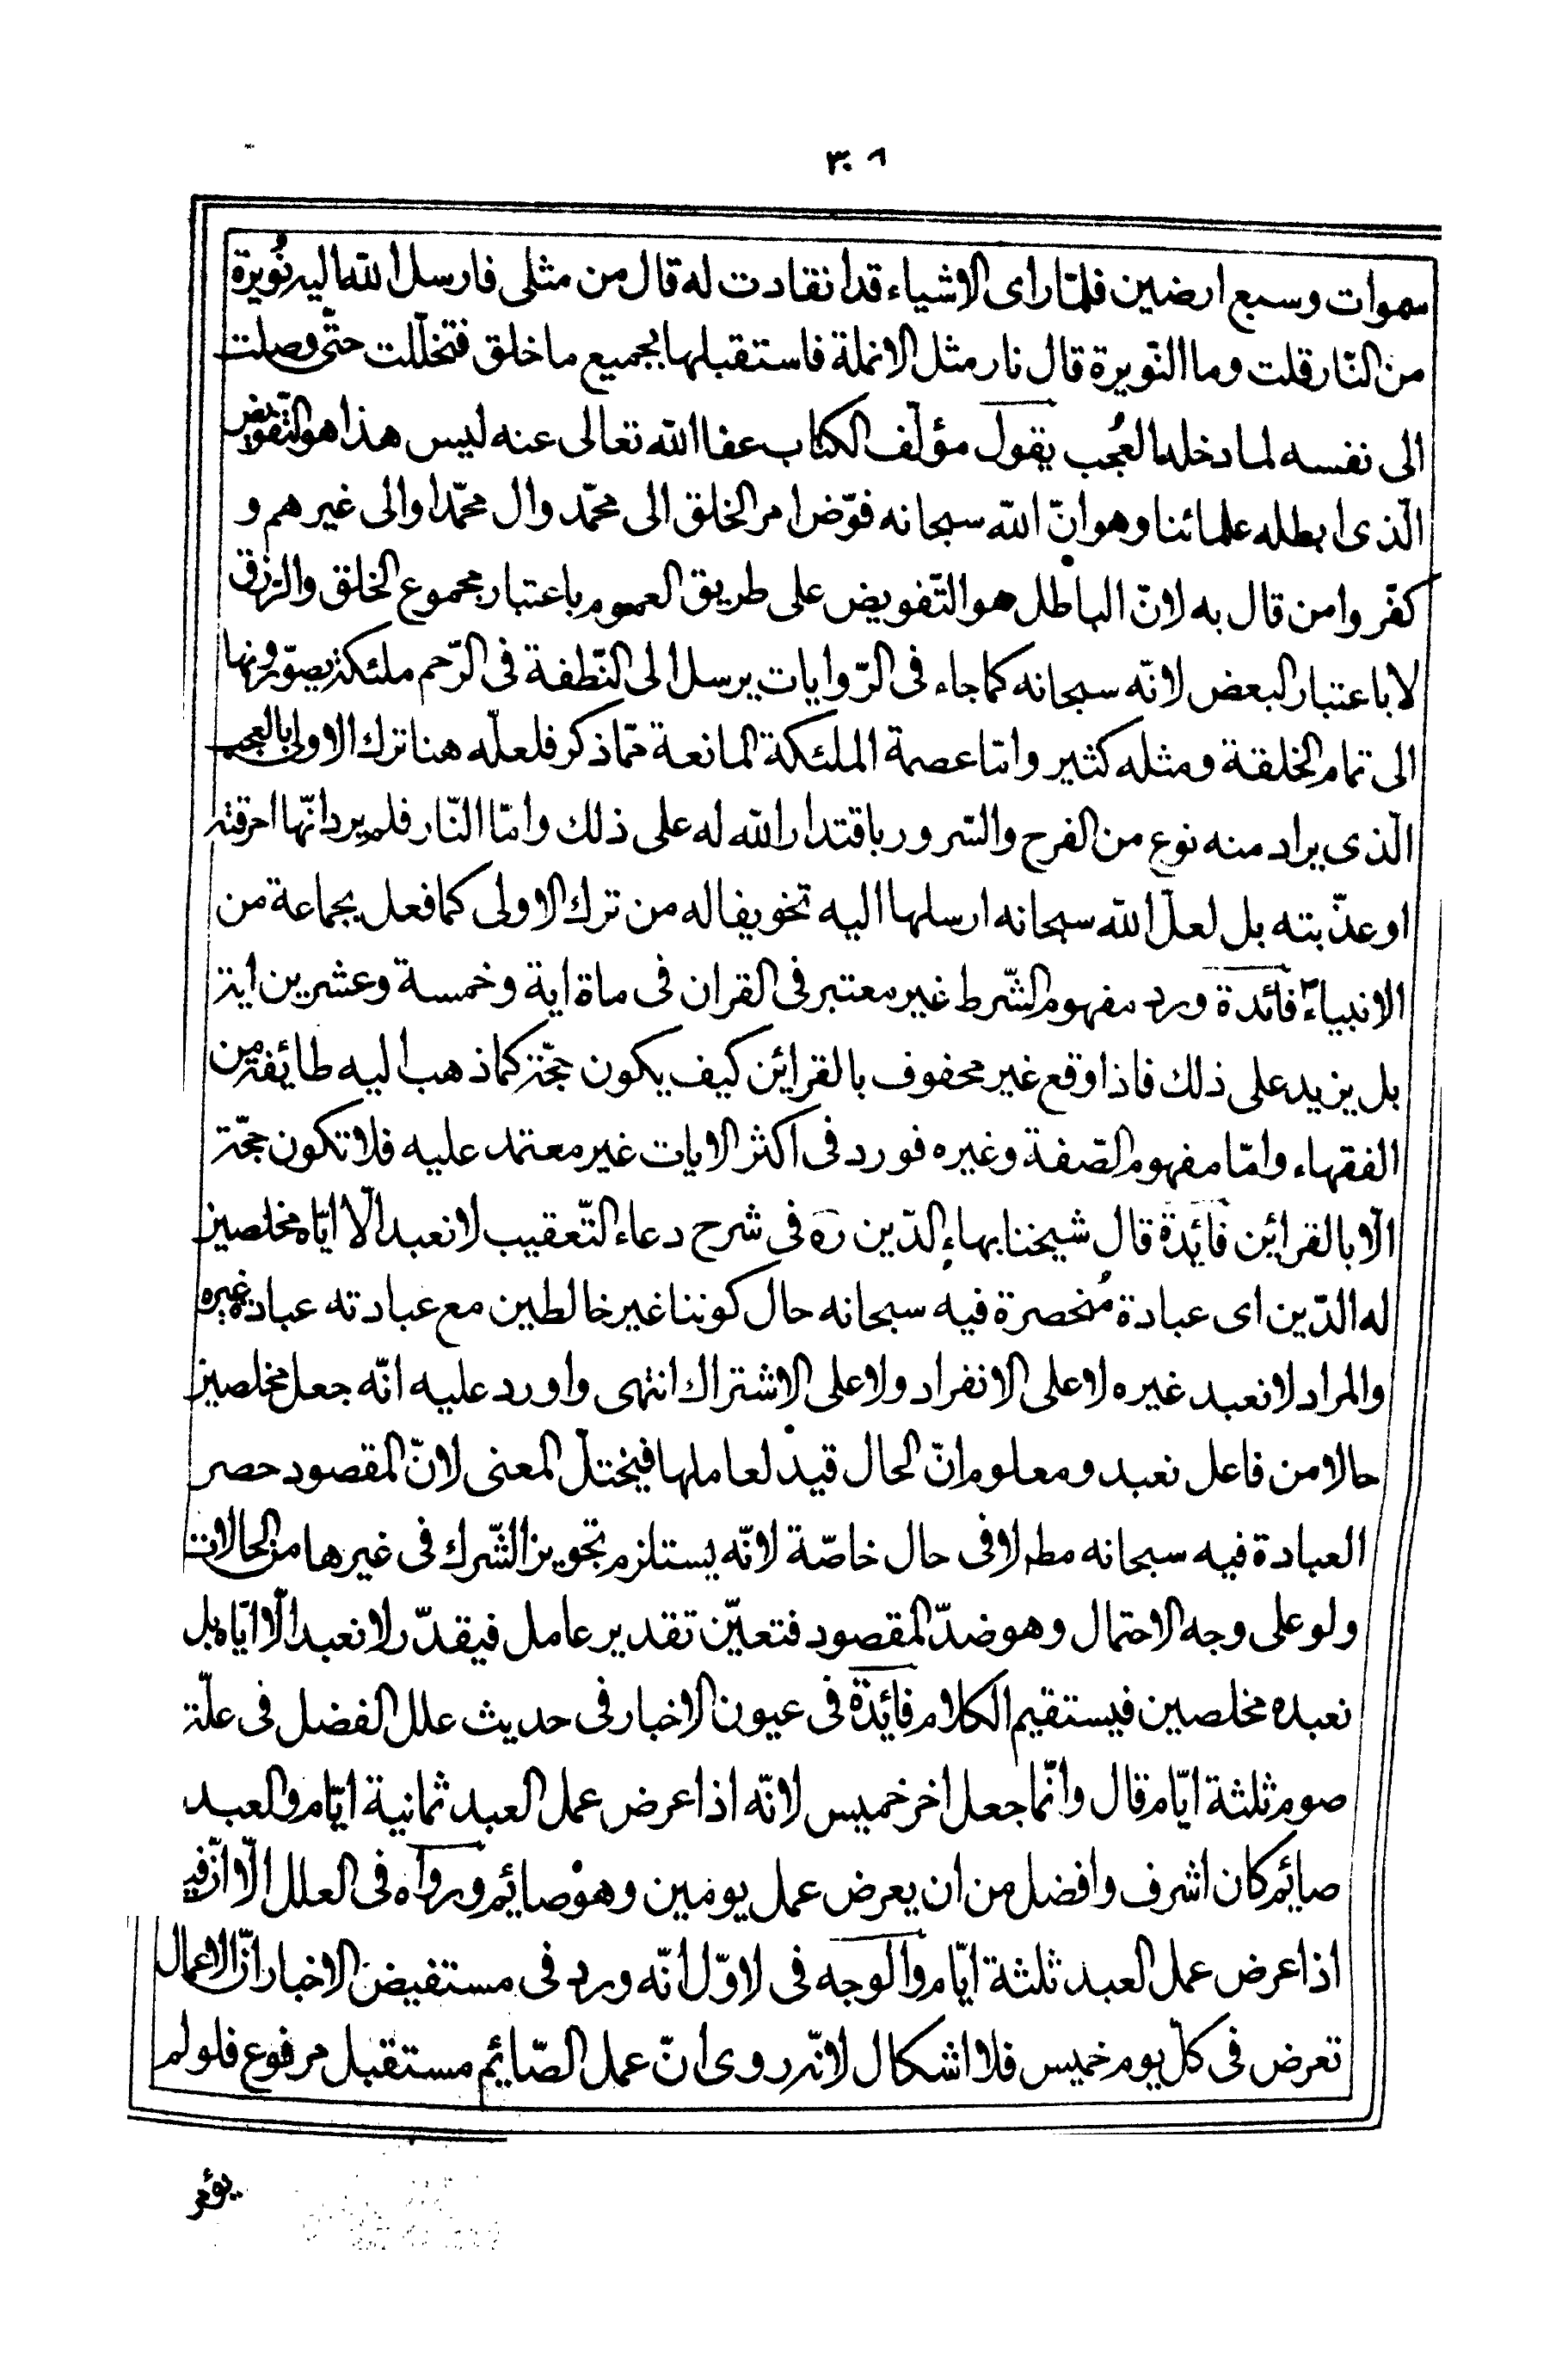 ٣٠٨
سموات وسبع ارضين فلمّا راى الاشياء قد انقادت له قال من مثلى فارسل الله اليه نُويرة
من النّار قلت وما النّويرة قال نار مثل الانملة فاستقبلها بجميع ما خلق فتخلّلت حتّى وصلت
الى نفسه لما دخله العُجب يقول مؤلّف الكتاب عفا الله تعالى عنه ليس هذا هو التّفويض
الّذى ابطله علمائنا وهو انّ الله سبحانه فوّض امر الخلق الى محمّد وال محمّد او الى غيرهم و
كفّروا من قال به لانّ الباطل هو التّفويض على طريق العموم باعتبار مجموع الخلق والرّزق
لا باعتبار البعض لانّه سبحانه كما جاء فى الرّوايات يرسل الى النّطفة فى الرّحم ملئكة يصوّرونها
الى تمام الخلقة ومثله كثير وامّا عصمة الملئكة المانعة ممّا ذكر فلعلّه هنا ترك الاولى بالعجب
الّذى يراد منه نوع من الفرح والسّرور باقتدار الله له على ذلك وامّا النّار فلم يرد انّها احرقته
او عذّبته بل لعلّ الله سبحانه ارسلها اليه تخويفا له من ترك الاولى كما فعل بجماعة من
الانبياءؑ فائدة ورد مفهوم الشّرط غير معتبر فى القران فى ماة اية وخمسة وعشرين اية
بل يزيد على ذلك فاذا وقع غير محفوف بالقرائن كيف يكون حجّة كما ذهب اليه طائفة من
الفقهاء وامّا مفهوم الصّفة وغيره فورد فى اكثر الايات غير معتمد عليه فلا تكون حجّة
الّا بالقرائن فائدة قال شيخنا بهاء الدّين ره فى شرح دعاء التّعقيب لا نعبد الّا ايّاه مخلصين
له الدّين اى عبادة مُنحصرة فيه سبحانه حال كوننا غير خالطين مع عبادته عبادة غيره
والمراد لا نعبد غيره لا على الانفراد ولا على الاشتراك انتهى واورد عليه انّه جعل مخلصين
حالا من فاعل نعبد ومعلوم انّ الحال قيد لعاملها فيختلّ المعنى لانّ المقصود حصر
العبادة فيه سبحانه مطم لا فى حال خاصّة لانّه يستلزم تجويز الشّرك فى غيرها من الحالات
ولو على وجه الاحتمال وهو ضدّ المقصود فتعيّن تقدير عامل فيقدّر لا نعبد الّا ايّاه بل
نعبده مخلصين فيستقيم الكلام فائدة فى عيون الاخبار فى حديث علل الفضل فى علّة
صوم ثلثة ايّام قال وانّما جعل اخر خميس لانّه اذا عرض عمل العبد ثمانية ايّام والعبد
صائم كان اشرف وافضل من ان يعرض عمل يومين وهو صائم ورواه فى العلل الّا انّ فيه
اذا عرض عمل العبد ثلثة ايّام والوجه فى لاوّل انّه ورد فى مستفيض الاخبار انّ الاعمال
تعرض فى كلّ يوم خميس فلا اشكال لانّه روى انّ عمل الصّائم مستقبل مرفوع فلو لم